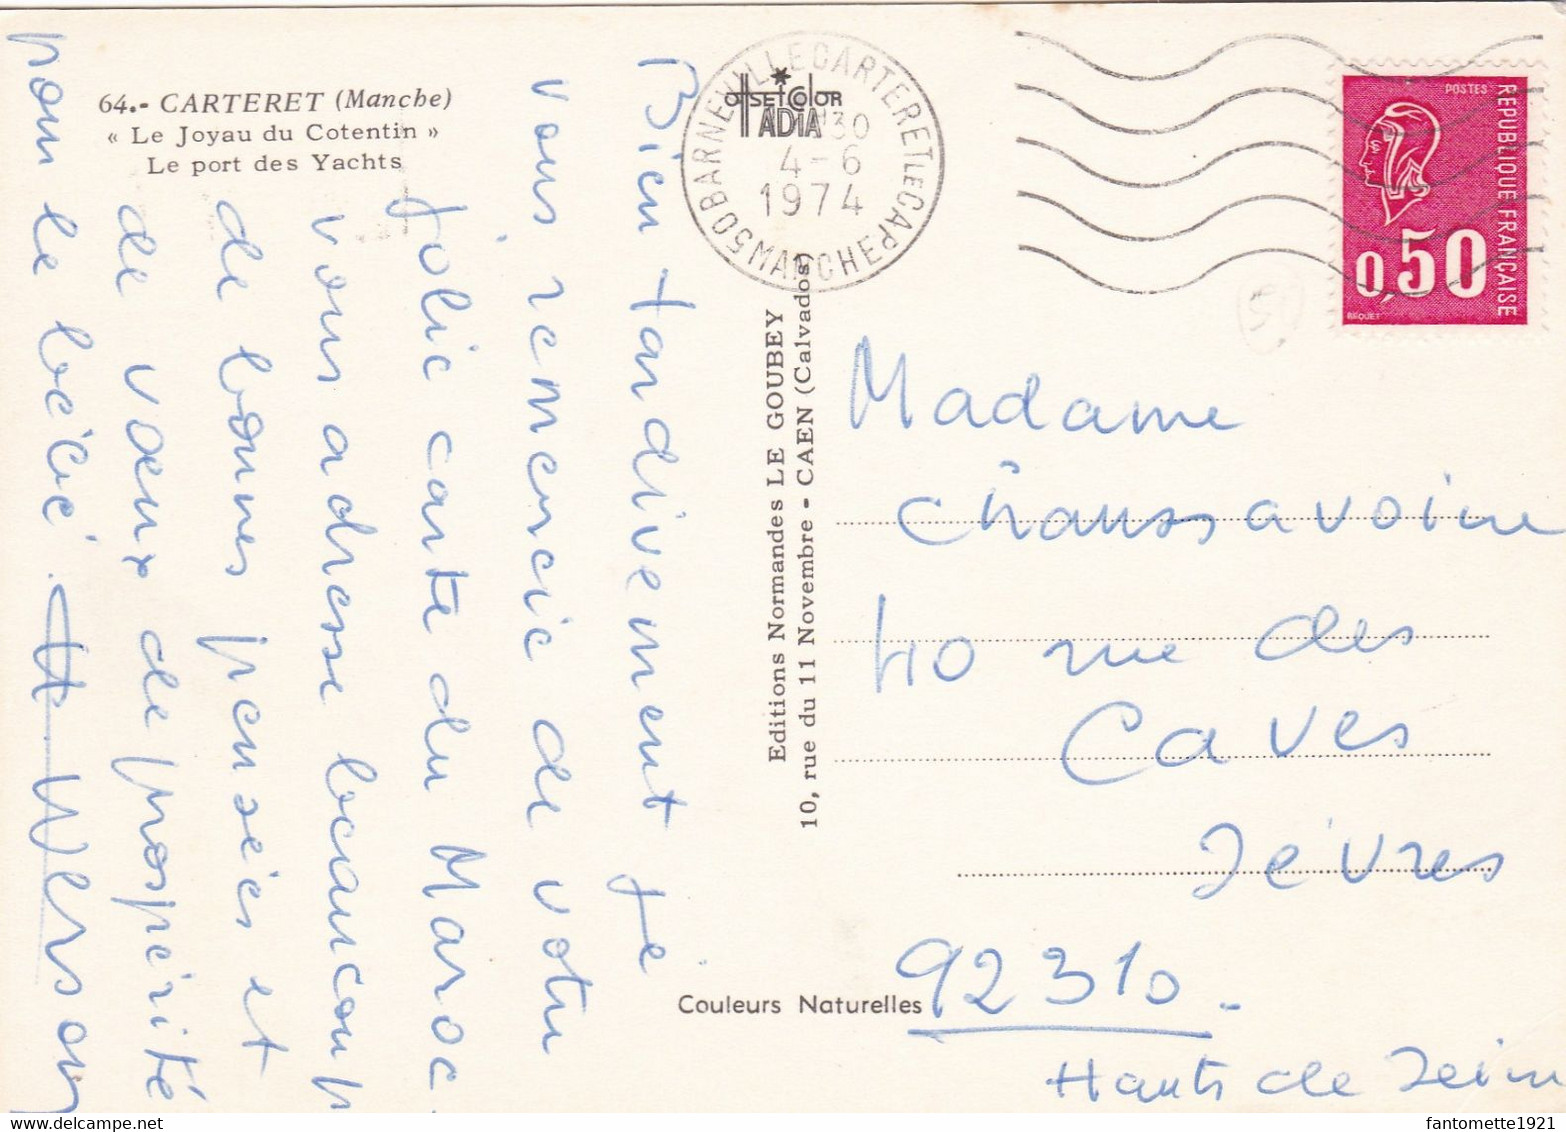 64.- CARTERET (Manche)
« Le Joyau du Cotentin »
Le port des Yachts
Bien tardivement je
vous remercie de votre
jolie carte du Maroc.
vous adresse beaucoup
de bonnes pensées et
de vœux de prospérité
pour le bébé.
Editions Normandes LE GOUBEY
10, rue du 11 Novembre - CAEN (Calvados)
Couleurs Naturelles
OFFSETCOLOR
IADIA
BARNEVILLE CARTERET LE CAP
50 MANCHE
30
4-6
1974
POSTES
REPUBLIQUE FRANÇAISE
0,50
BEQUET
Madame
Chaussavoine
40 rue des
Caves
Sèvres
92310.
Hauts de Seine
fantomette1921